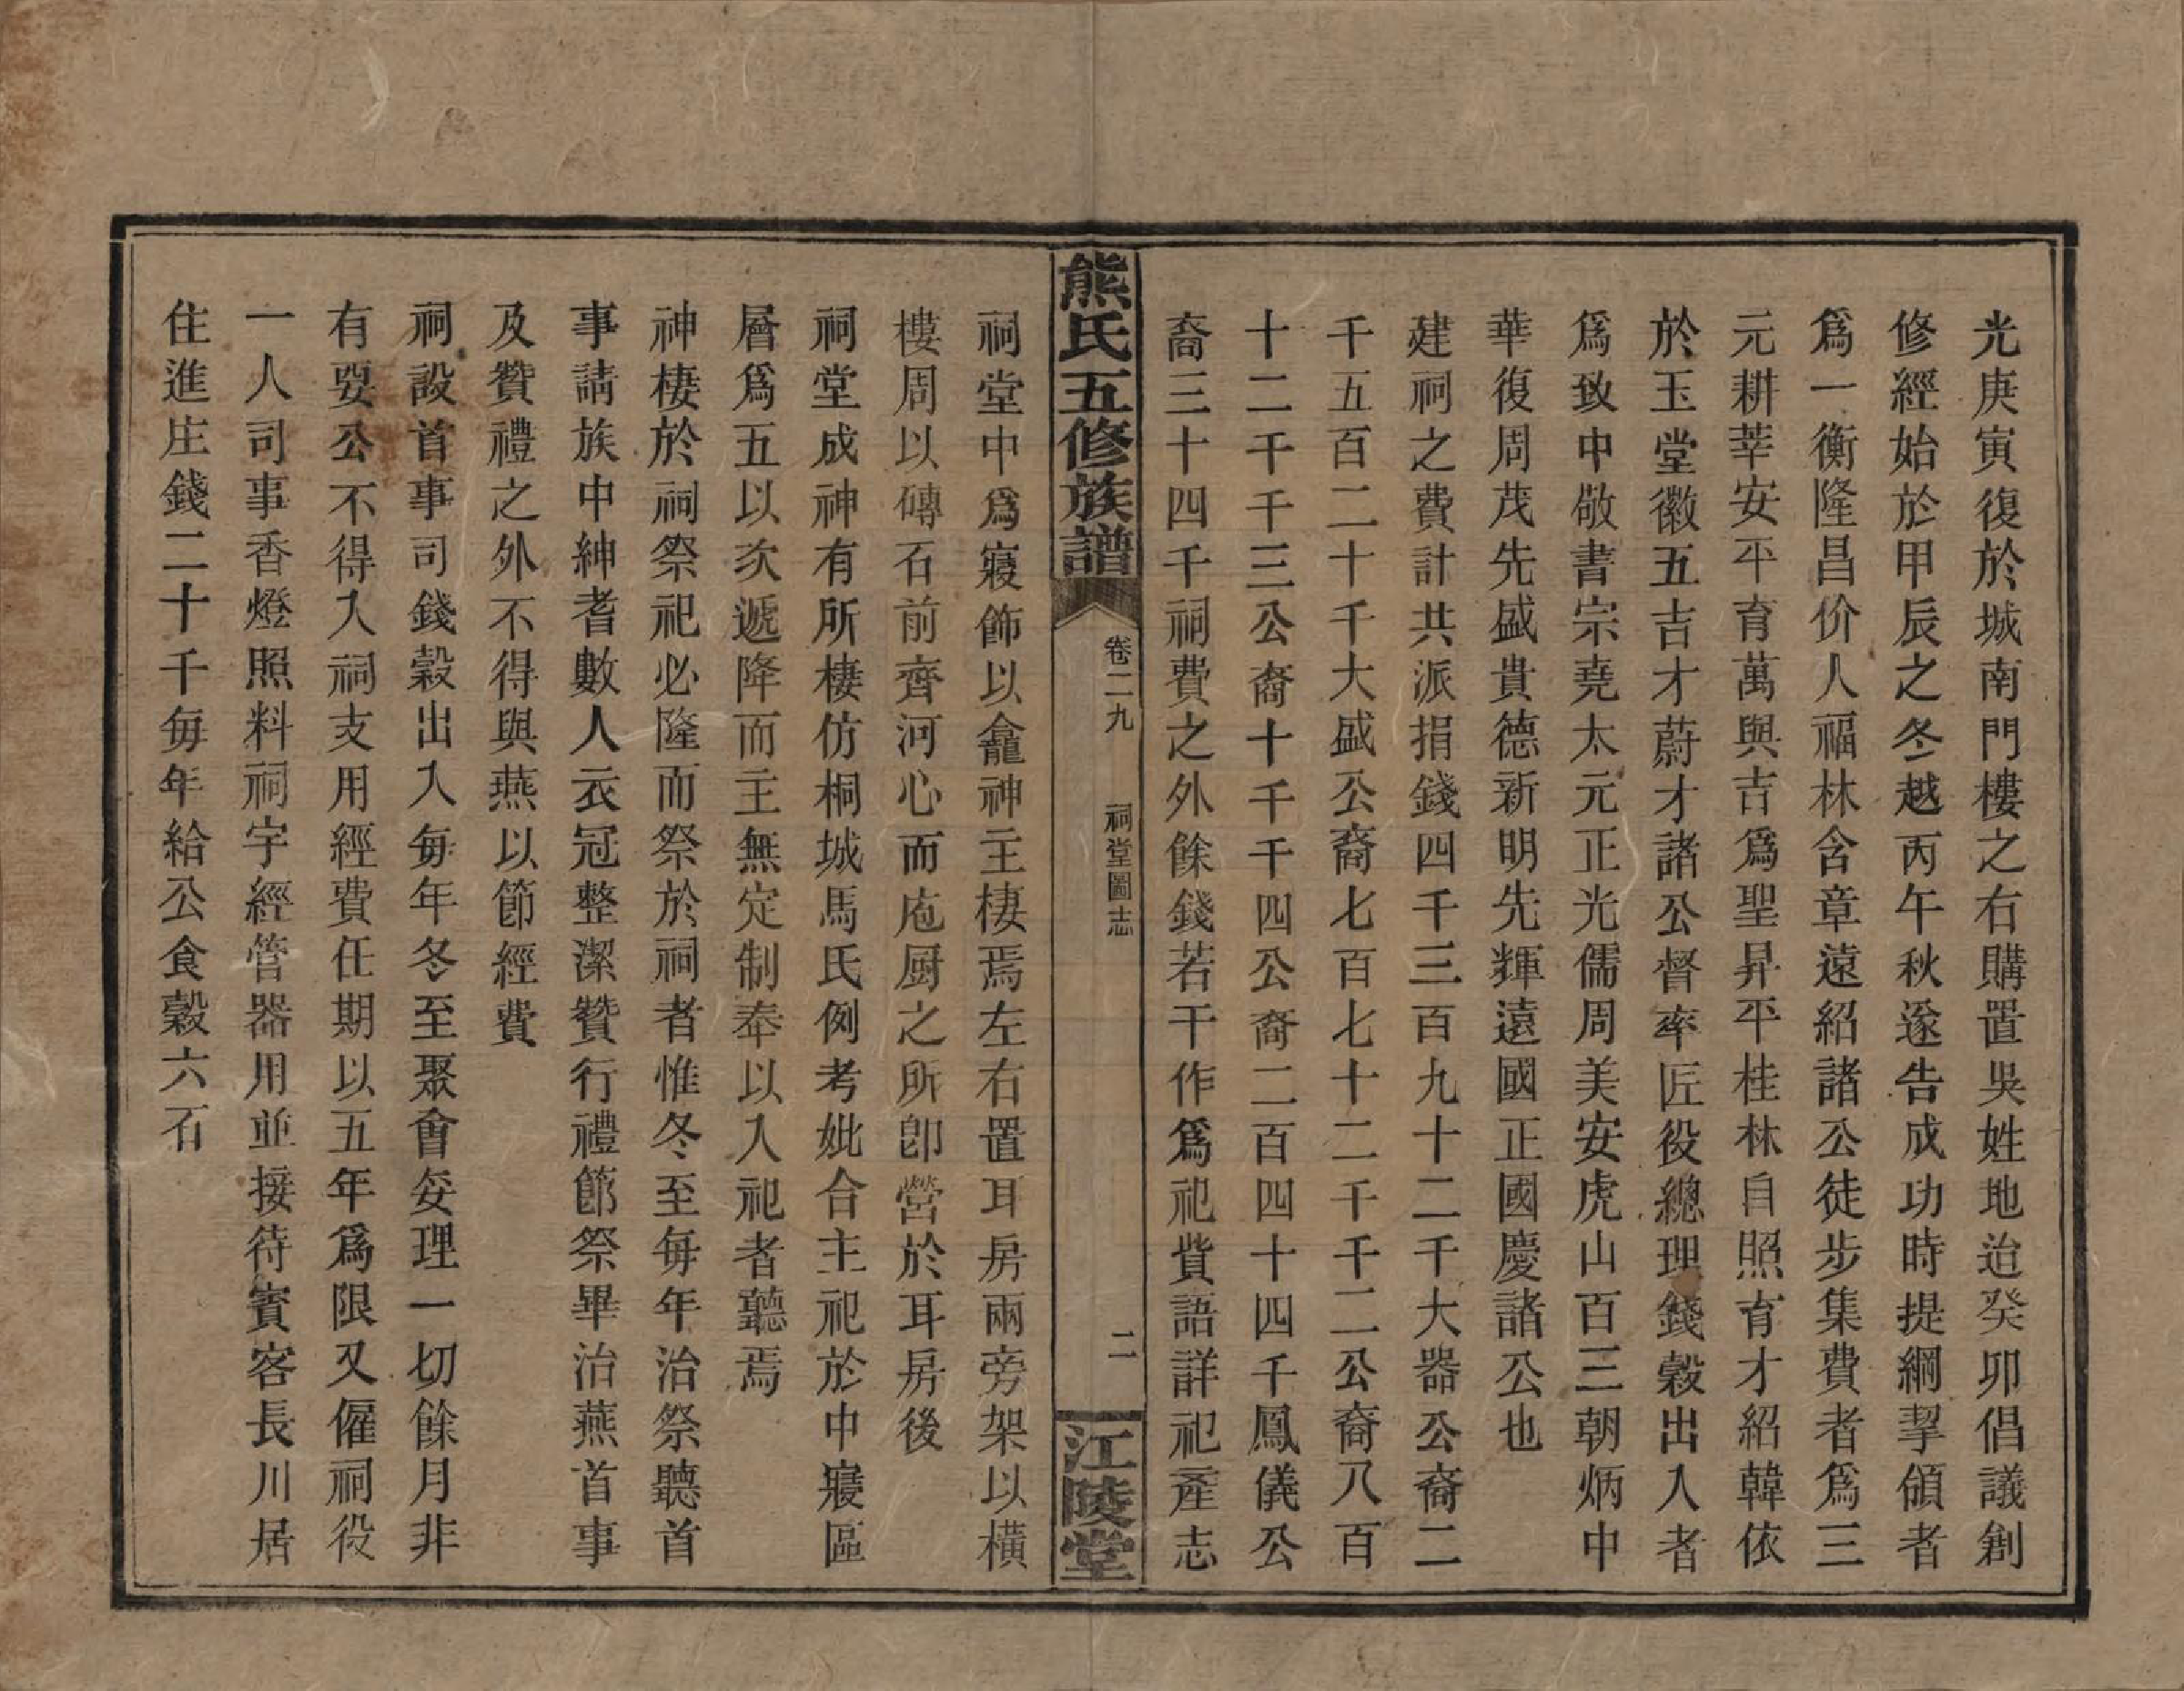 光庚寅復於城南門樓之右購置吳姓地迨癸卯倡議創
修經始於甲辰之冬越丙午秋遂告成功時提綱挈領者
爲一衡隆昌价人福林含章遠紹諸公徒步集費者爲三
元耕莘安平育萬與吉爲聖昇平桂林自照育才紹韓依
於玉堂徽五吉才蔚才諸公督率匠役總理錢穀出入者
爲致中敬書宗堯太元正光儒周美安虎山百三朝炳中
華復周茂先盛貴德新明先輝遠國正國慶諸公也
建祠之費計共派捐錢四千三百九十二千大器公裔二
千五百二十千大盛公裔七百七十二千千二公裔八百
十二千千三公裔十千千四公裔二百四十四千鳳儀公
裔三十四千祠費之外餘錢若干作爲祀貲語詳祀產志
熊氏五修族譜
卷二九
祠堂圖志
二
江陵堂
祠堂中爲寢飾以龕神主棲焉左右置耳房兩旁架以橫
樓周以磚石前齊河心而庖厨之所卽營於耳房後
祠堂成神有所棲仿桐城馬氏例考妣合主祀於中寢區
層爲五以次遞降而主無定制奉以入祀者聽焉
神棲於祠祭祀必隆而祭於祠者惟冬至每年治祭聽首
事請族中紳耆數人衣冠整潔贊行禮節祭畢治燕首事
及贊禮之外不得與燕以節經費
祠設首事司錢穀出入每年冬至聚會妥理一切餘月非
有要公不得入祠支用經費任期以五年爲限又僱祠役
一人司事香燈照料祠宇經管器用並接待賓客長川居
住進庄錢二十千每年給公食穀六石